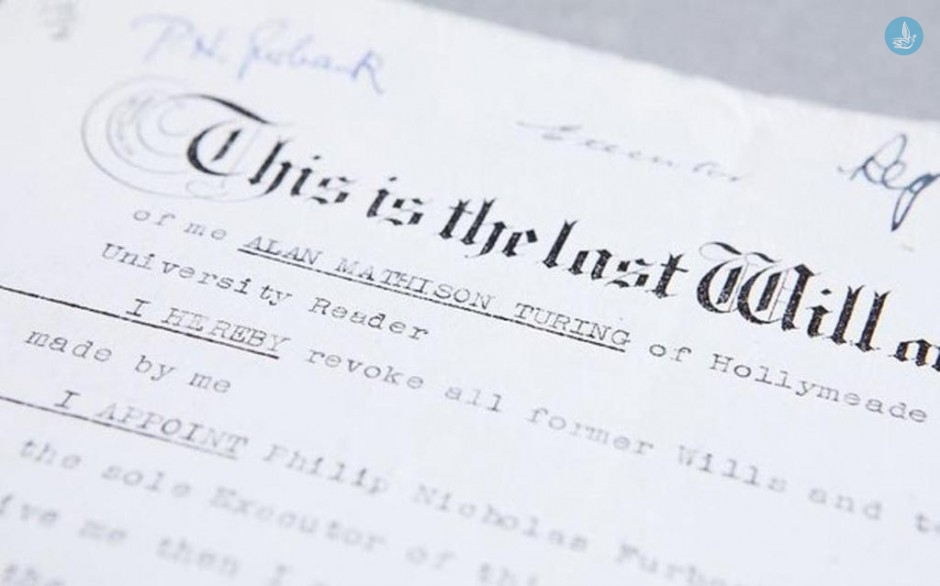 P.N. Furbank
Executor
Reg
This is the last Will a
of me ALAN MATHISON TURING of Hollymeade
University Reader
I HEREBY revoke all former Wills and te
made by me
I APPOINT Philip Nicholas Furba
the sole Executor of thi
ive me then I
the